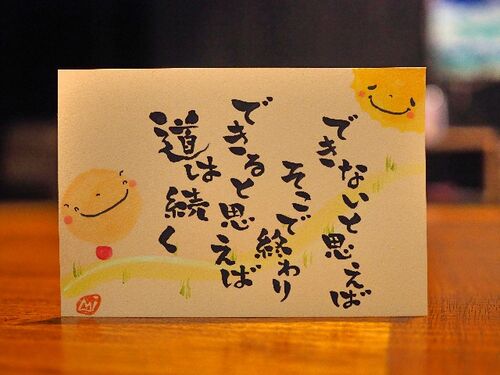 できないと思えば
そこで終わり
できると思えば
道は続く
Mi